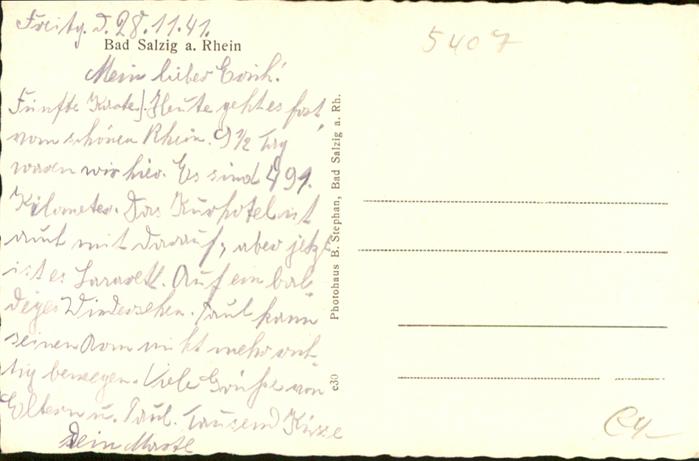 Freitg. d. 28.11.41.
Bad Salzig a. Rhein
5407
Mein lieber Erich!
Fünfte Karte]. Heute geht es fort
vom schönen Rhein. 9 1/2 Tag
waren wir hier. Es sind 491.
Kilometer. Das Kurhotel ist
auch mit darauf, aber jetzt
ist es Lazarett. Auf ein bal-
diges Wiedersehen. Paul kann
seinen Arm nicht mehr rich-
tig bewegen. Viele Grüße von
Eltern u. Paul. Tausend Küsse
Dein
Photohaus B. Stephan, Bad Salzig a. Rh.
e30